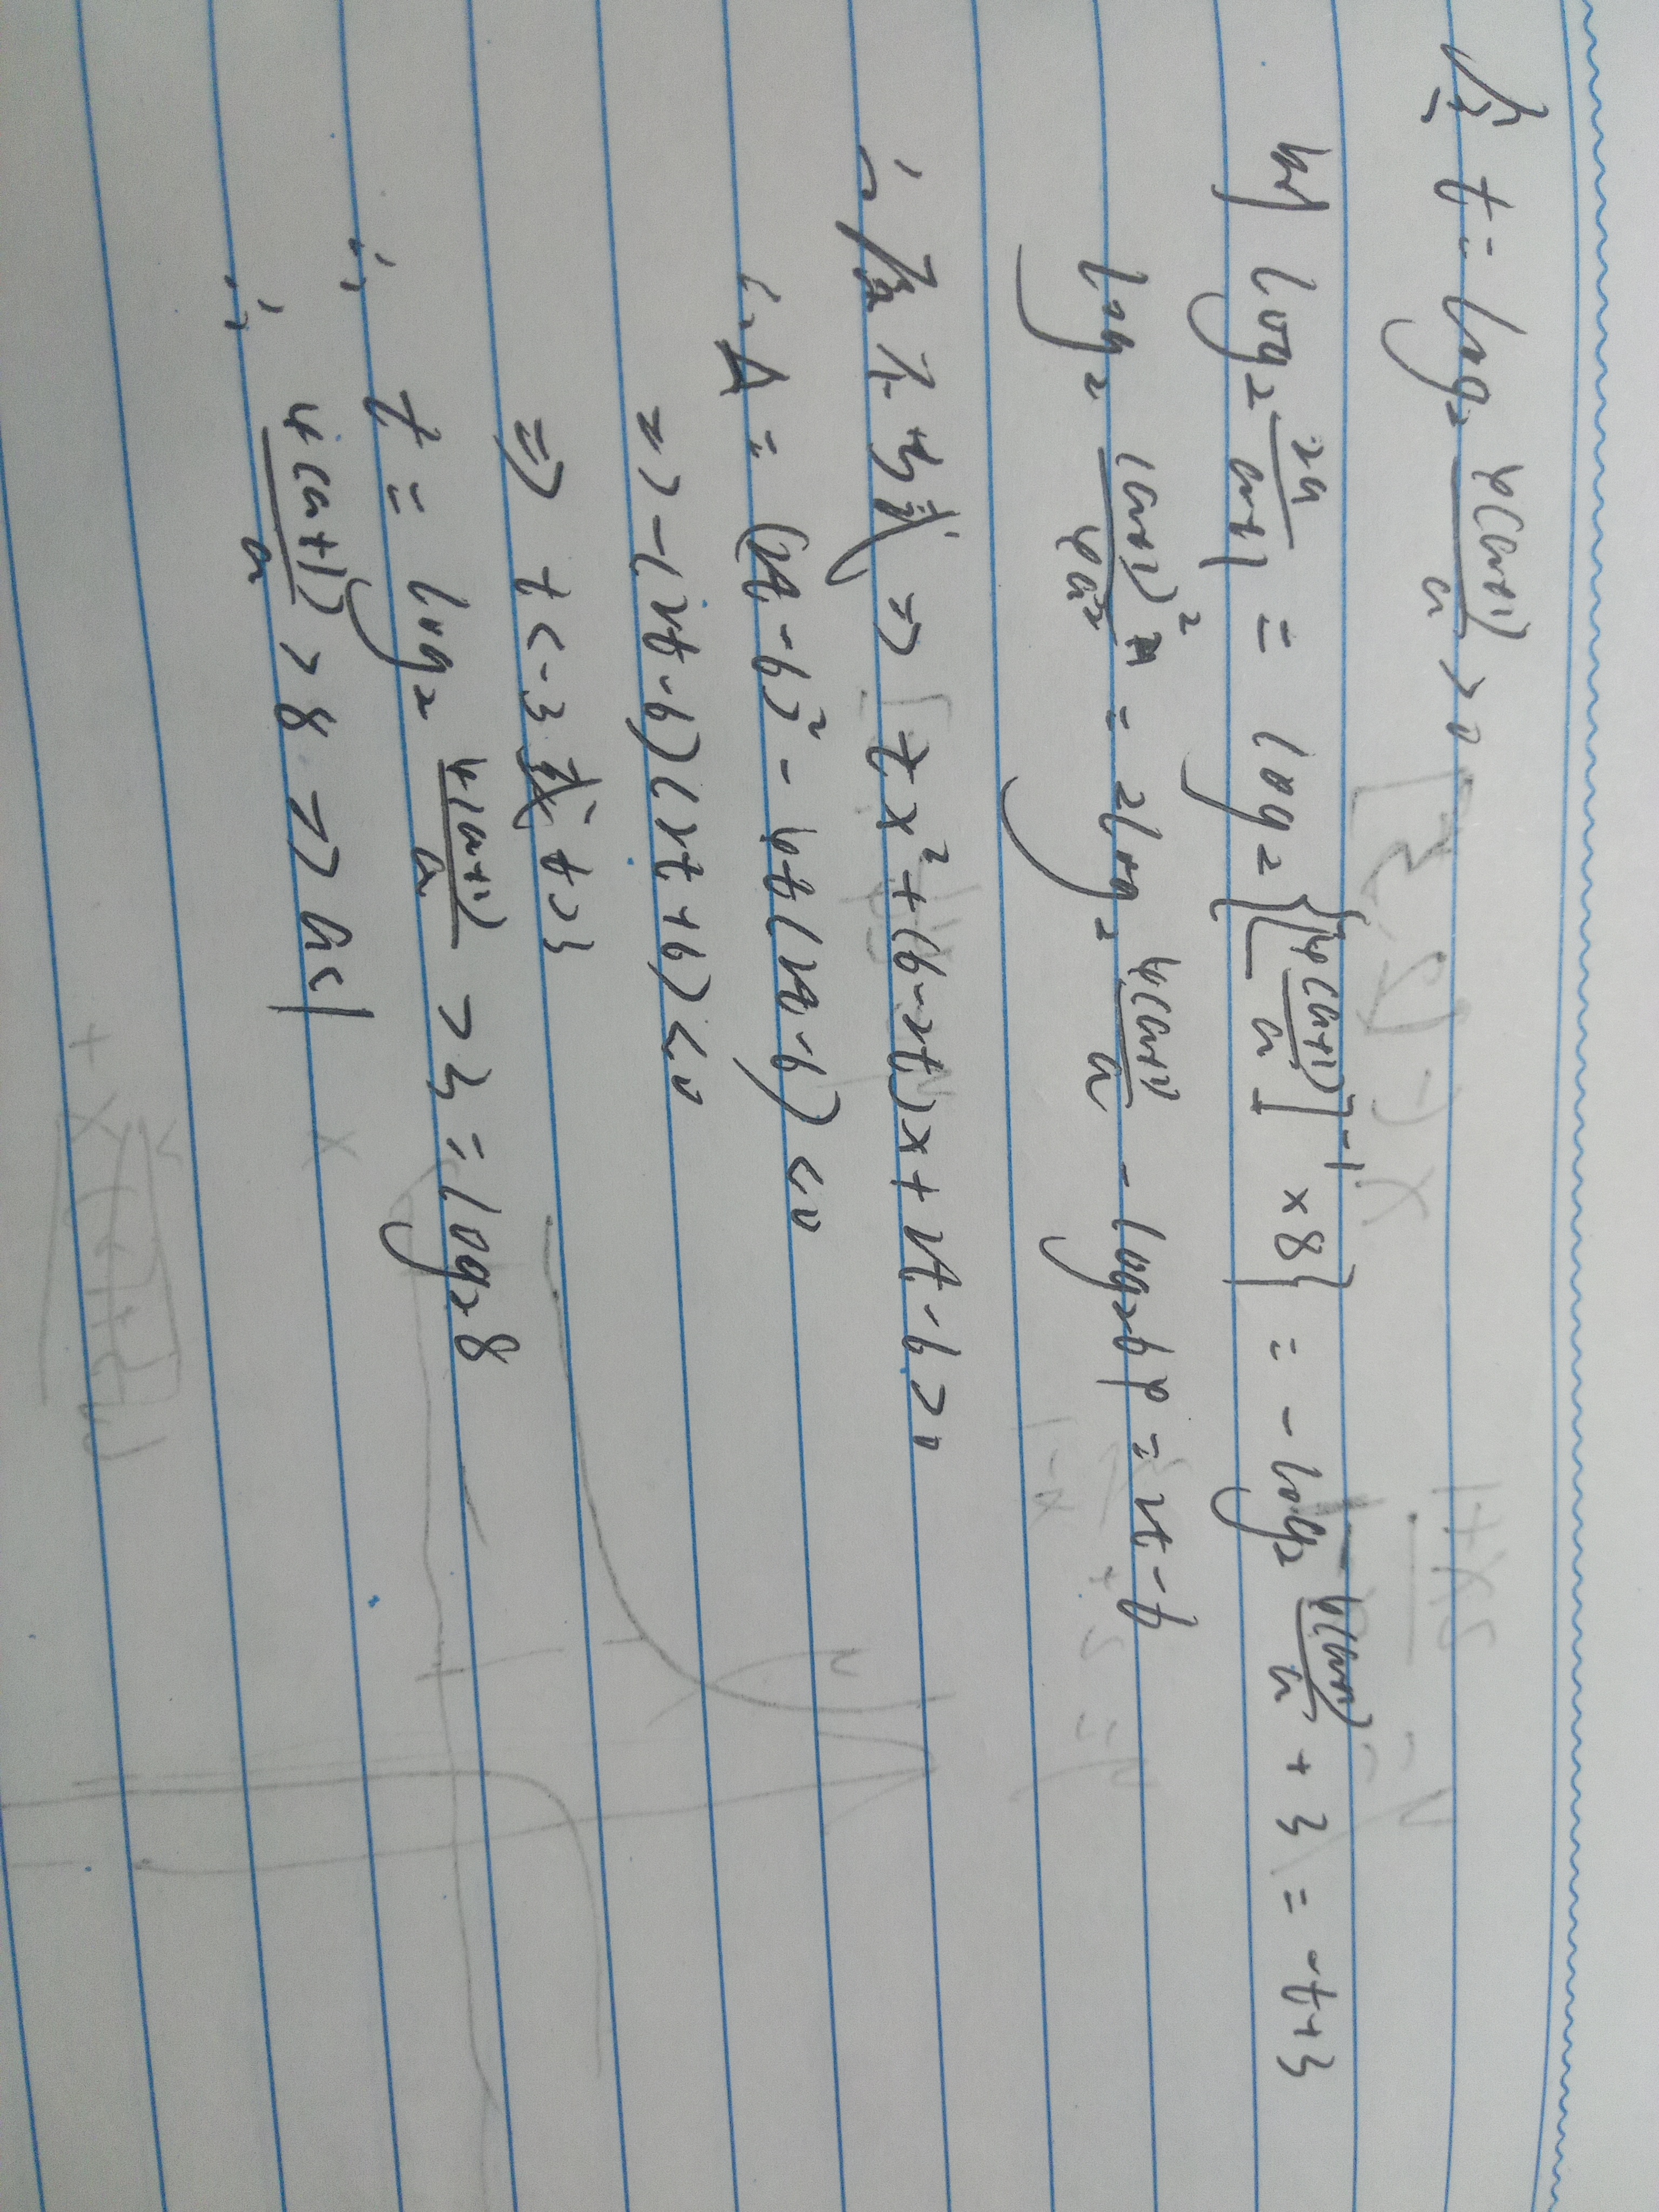 令 t = log₂ 4(a+1)/a > 0
则 log₂ 2a/(a+1) = log₂{[4(a+1)/a]⁻¹ × 8} = -log₂ 4(a+1)/a + 3 = -t+3
log₂ (a+1)²/4a² = 2log₂ 4(a+1)/a - log₂64 = 2t-6
∴ 原不等式 => tx²+(6-2t)x+2t-6>0
∴ Δ = (2t-6)² - 4t(2t-6) < 0
=> -(2t-6)(2t+6) < 0
=> t<-3 或 t>3
∴ t = log₂ 4(a+1)/a > 3 = log₂8
∴ 4(a+1)/a > 8 => a<1